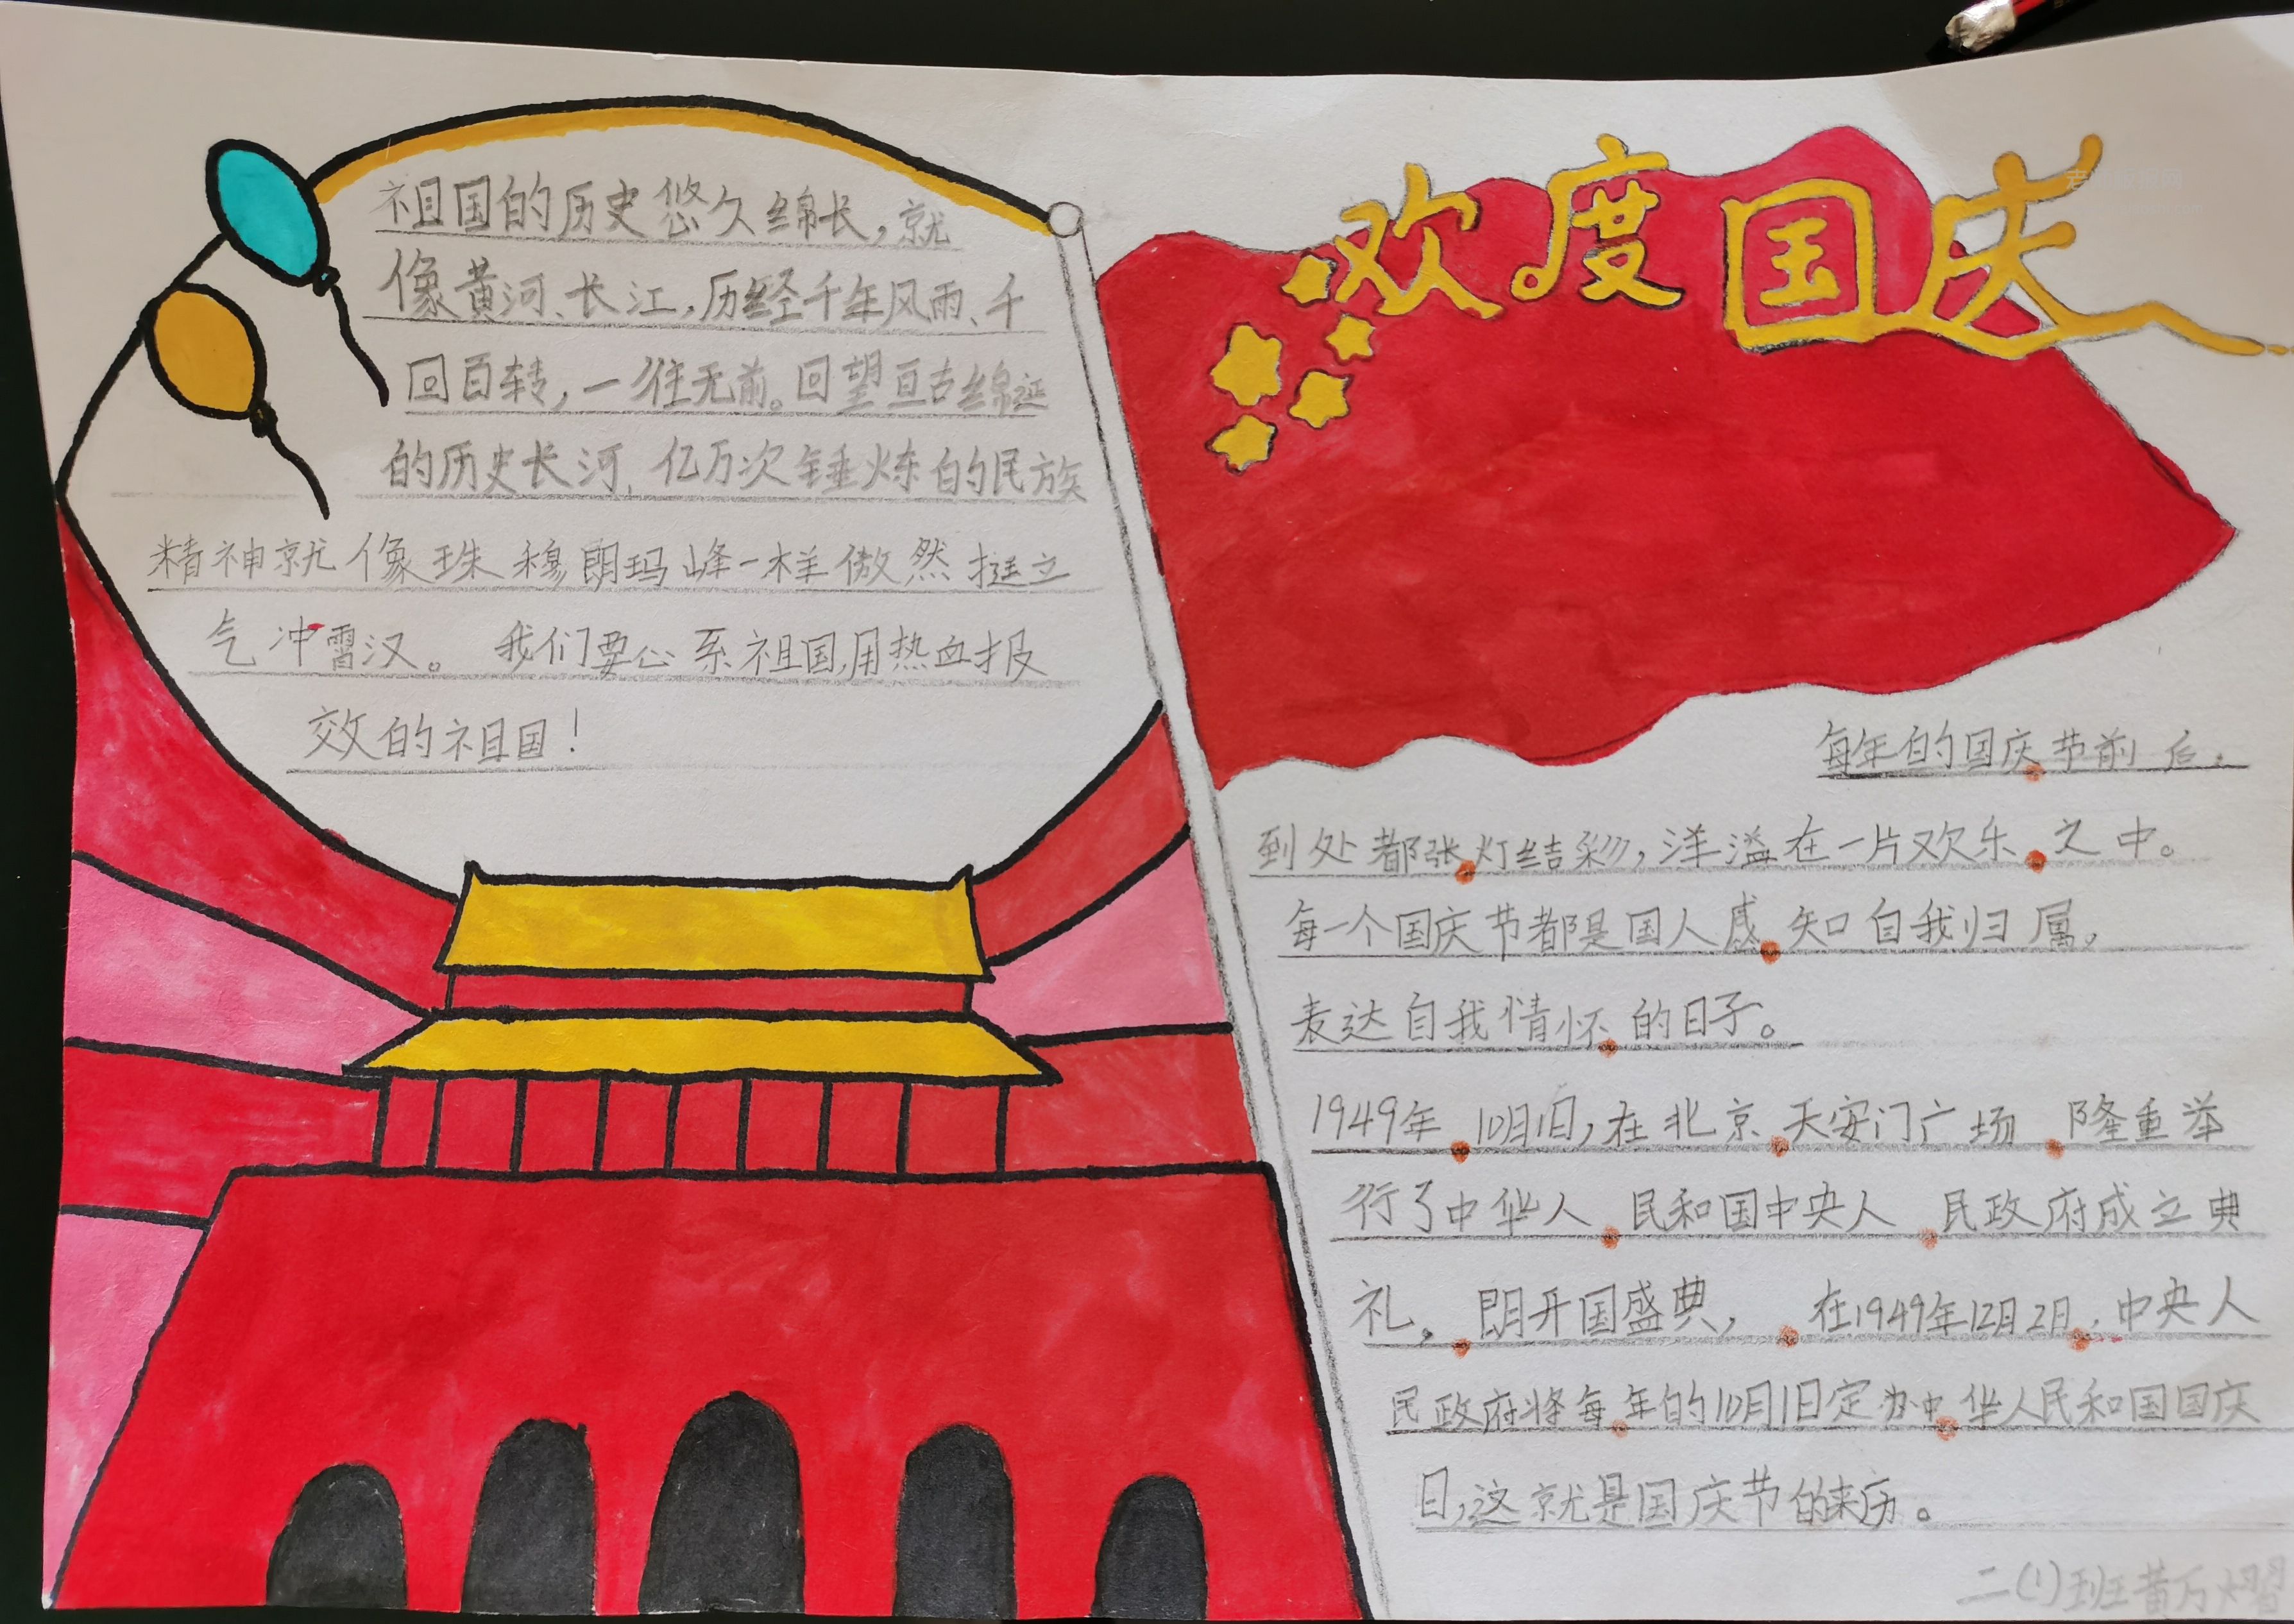 欢度国庆
祖国的历史悠久绵长，就
像黄河、长江，历经千年风雨、千
回百转，一往无前。回望亘古绵延
的历史长河，亿万次锤炼的民族
精神就像珠穆朗玛峰一样傲然挺立
气冲霄汉。我们要心系祖国，用热血报
效的祖国！
每年的国庆节前后，
到处都张灯结彩，洋溢在一片欢乐之中。
每一个国庆节都是国人感知自我归属，
表达自我情怀的日子。
1949年10月1日，在北京天安门广场隆重举
行了中华人民和国中央人民政府成立典
礼，即开国盛典，在1949年12月2日，中央人
民政府将每年的10月1日定为中华人民和国国庆
日，这就是国庆节的来历。
二(1)班黄万熠